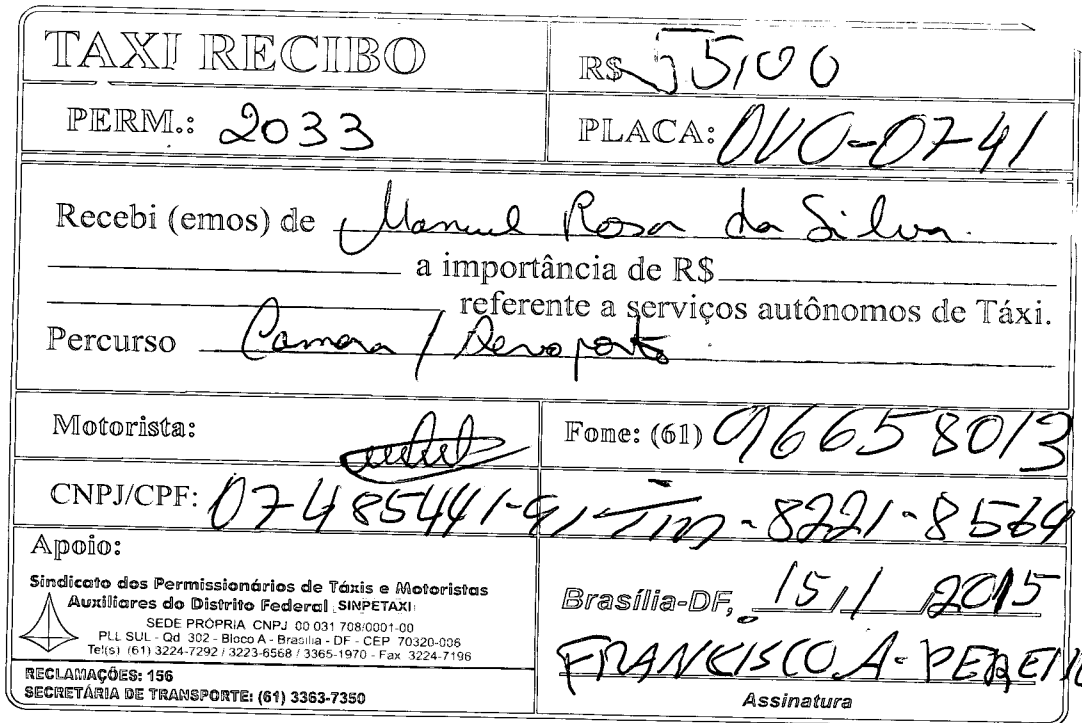 TAXI RECIBO
R$ 55,00
PERM.: 2033
PLACA: OVO-0741
Recebi (emos) de Manuel Rosa da Silva.
a importância de R$
referente a serviços autônomos de Táxi.
Percurso Camara / Aeroporto
Motorista:
Fone: (61) 96658013
CNPJ/CPF: 07485441-91 Tim-8221-8564
Apoio:
Sindicato dos Permissionários de Táxis e Motoristas
Auxiliares do Distrito Federal SINPETAXI
SEDE PRÓPRIA CNPJ 00 031 708/0001-00
PLL SUL - Qd 302 - Bloco A - Brasília - DF - CEP 70320-006
Tel(s) (61) 3224-7292 / 3223-6568 / 3365-1970 - Fax 3224-7196
RECLAMAÇÕES: 156
SECRETÁRIA DE TRANSPORTE: (61) 3363-7350
Brasília-DF, 15/1/2015
FRANCISCO A-PEREIR
Assinatura